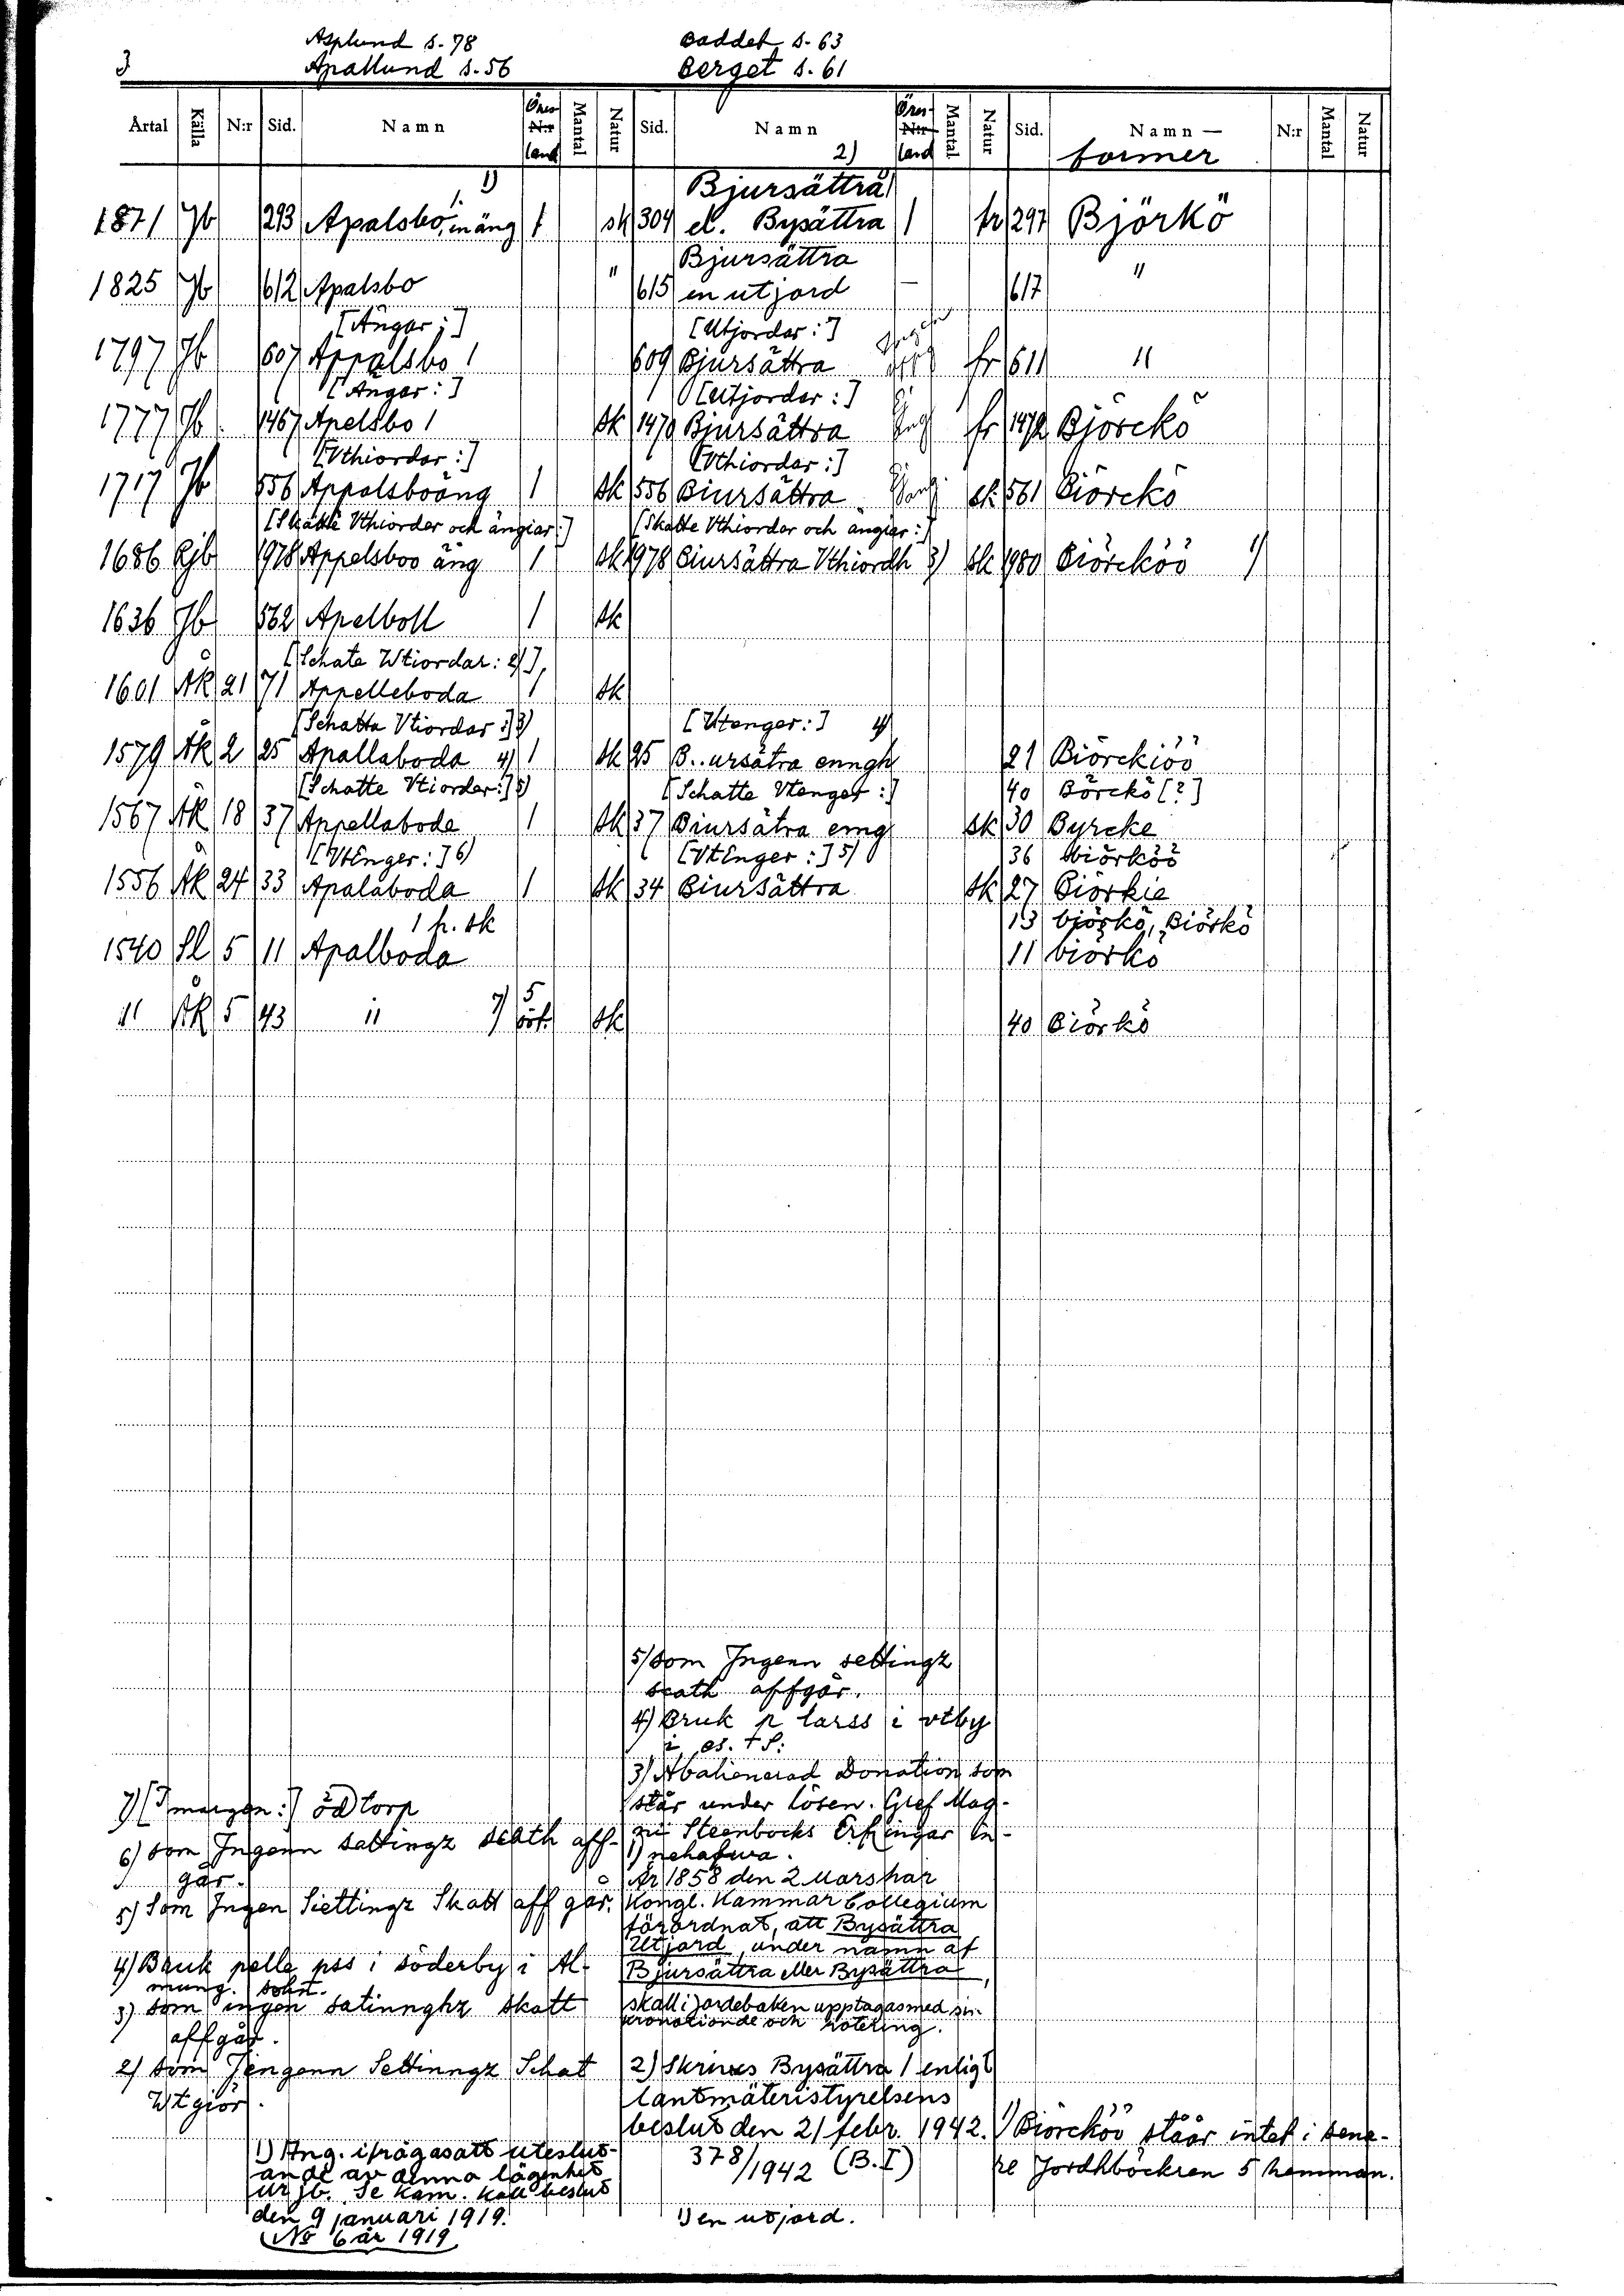 Asplund s. 78
Apallund s. 56
Baddet s. 63
Berget s. 61
3
Årtal Källa N:r Sid. Namn Öres N:r land Mantal Natur Sid. Namn 2) Öres N:r land Mantal Natur Sid. Namn— former N:r Mantal Natur
1) Bjursättra
1871 Jb 293 Apalsbo, en äng 1 sk 304 el. Bysättra 1 fr 297 Björkö
Bjursättra
1825 Jb 612 Apalsbo " 615 en utjord — 617 "
[Ängar:] [Utjordar:]
1797 Jb 607 Appalsbo 1 609 Bjursättra fr 611 "
[Ängar:] [Utjordar:]
1777 Jb 1467 Apelsbo 1 sk 1470 Bjursättra fr 1472 Björckö
[Vthiordar:] [Vthiordar:]
1717 Jb 556 Appolsboäng 1 sk 556 Biursättra sk 561 Biörckö
[Skatte Vthiordar och ängiar:] [Skatte Vthiordar och ängiar:]
1686 Rjb 1978 Appelsboo äng 1 sk 1978 Biursättra Vthiordh 3) sk 1980 Biörcköö 1)
1636 Jb 562 Apelboll 1 sk
[Schate Wtiordar: 2)],
1601 Åk 21 71 Appelleboda 1 sk
[Schatta Vtiordar:] 3) [Utenger:] 4)
1579 Åk 2 25 Apallaboda 4) 1 sk 25 B..ursätra enngh 21 Biörckiöö
[Schatte Vtiorder:] 5) [Schatte Vtenger:] 40 Börckö [?]
1567 Åk 18 37 Appellaboda 1 sk 37 Biursätra emg sk 30 Byrcke
[Vtenger:] 6) [Vtenger:] 5) 36 Biörköö
1556 Åk 24 33 Apalaboda 1 sk 34 Biursättra sk 27 Biörkie
1 h. sk 13 björkö, Biörkö
1540 Sl 5 11 Apalboda 11 biörkö
" Åk 5 43 " 7) 5 ört. sk 40 Biörkö
5) som Ingenn settingz
scath affgör.
4) Bruk p larss i vtby
i es. ts:
3) Abalienerad Donation som
står under lösen. Gref Mag-
nii Steenbocks Erfningar in-
nehafwa.
1) År 1858 den 2 Mars har
Kongl. Kammar Collegium
förordnat, att Bysättra
Utjord, under namn af
Bjursättra eller Bysättra,
skall i jordeboken upptagas med sin
kronotionde och rotering.
2) Skrives Bysättra 1 enligt
lantmäteristyrelsens
beslut den 21 febr. 1942.
378/1942 (B.I)
1) en utjord.
7) [I margen:] öde torp
6) som Ingenn settingz scath aff-
gör.
5) Som Ingen Siettingz Skatt aff gör.
4) Bruk pelle pss i söderby i Al-
mung. sohn.
3) som ingen satinnghz skatt
affgår.
2) som Jengenn Settinngz Schat
Wtgiör.
1) Ang. ifrågasatt uteslut-
ande av denna lägenhet
ur jb. Se Kam. koll. beslut
den 9 januari 1919.
No 6 år 1919
1) Biörcköö står intet i sena-
re Jordhböckren 5 hemman.